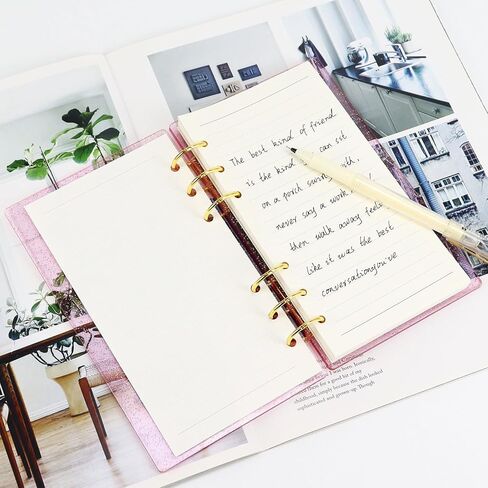 The best kind of friend
is the kind can sit
on a porch swing with,
never say a wor
then walk away feel
like it was the best
conversationyou've
childhood, simply because the did looked
sophisticated and grown up. Though